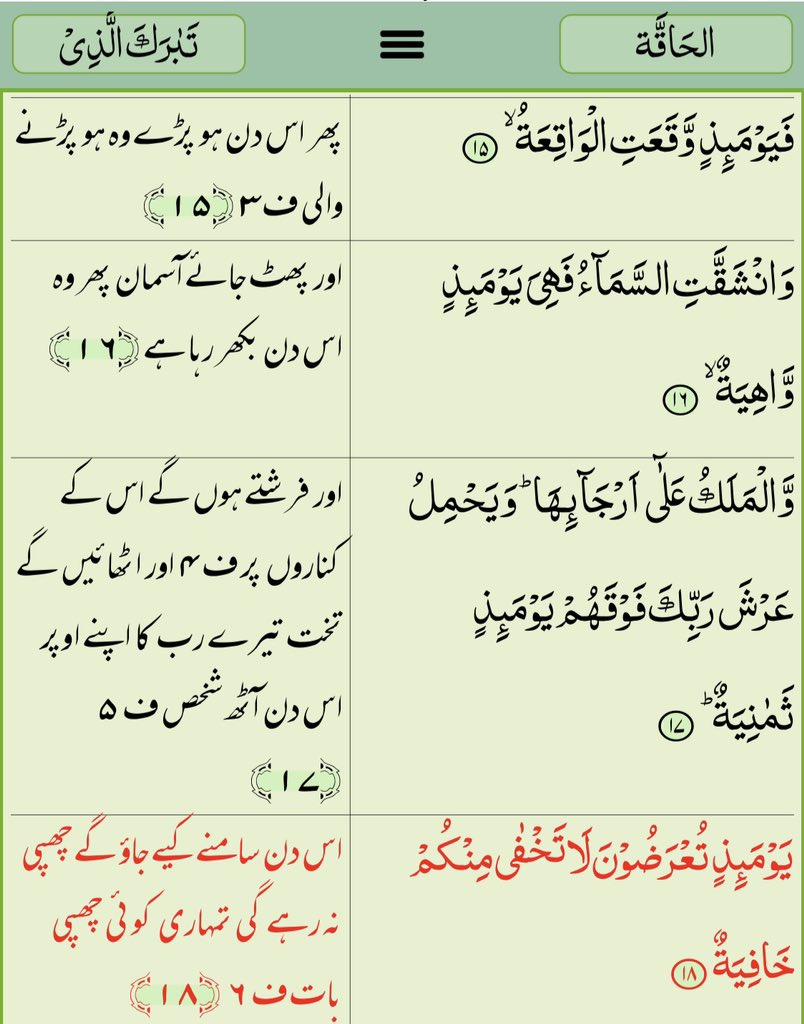 الحَاقَّة
تَبٰرَكَ الَّذِیْ
فَیَوْمَىِٕذٍ وَّقَعَتِ الْوَاقِعَةُۙ ۱۵
پھر اس دن ہو پڑے وہ ہو پڑنے
والی ف۳ ﴿۱۵﴾
وَ انْشَقَّتِ السَّمَآءُ فَهِیَ یَوْمَىِٕذٍ
وَّاهِیَةٌۙ ۱۶
اور پھٹ جائے آسمان پھر وہ
اس دن بکھر رہا ہے ﴿۱۶﴾
وَّ الْمَلَكُ عَلٰۤى اَرْجَآىِٕهَاؕ وَ یَحْمِلُ
عَرْشَ رَبِّكَ فَوْقَهُمْ یَوْمَىِٕذٍ
ثَمٰنِیَةٌؕ ۱۷
اور فرشتے ہوں گے اس کے
کناروں پر ف۴ اور اٹھائیں گے
تخت تیرے رب کا اپنے اوپر
اس دن آٹھ شخص ف۵
﴿۱۷﴾
یَوْمَىِٕذٍ تُعْرَضُوْنَ لَا تَخْفٰى مِنْكُمْ
خَافِیَةٌ ۱۸
اس دن سامنے کیے جاؤ گے چھپی
نہ رہے گی تمہاری کوئی چھپی
بات ف۶ ﴿۱۸﴾